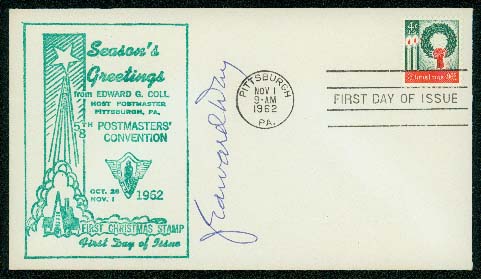 Season's
Greetings
from EDWARD G. COLL
HOST POSTMASTER
PITTSBURGH, PA.
58TH POSTMASTERS'
CONVENTION
OCT. 28
NOV. 1
1962
FIRST CHRISTMAS STAMP
First Day of Issue
J Edward Day
PITTSBURGH
NOV 1
9-AM
1962
PA.
4¢
Christmas 1962
FIRST DAY OF ISSUE